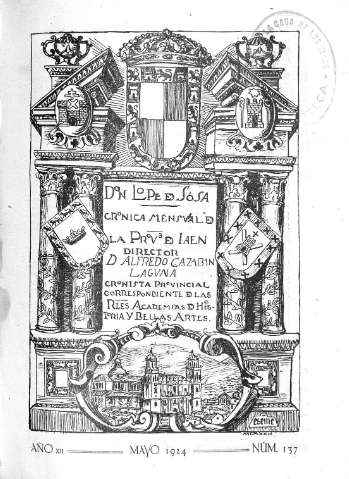 DON LOPE D SOSA
CRONICA MENSVAL D
LA PROVª D JAEN
DIRECTOR
D ALFREDO CAZABAN
LAGUNA
CRONISTA PROVINCIAL
CORRESPONDIENTE D LAS
RLES ACADEMIAS D HIS-
TORIA Y BELLAS ARTES.
AÑO XII MAYO 1924 NÚM. 137